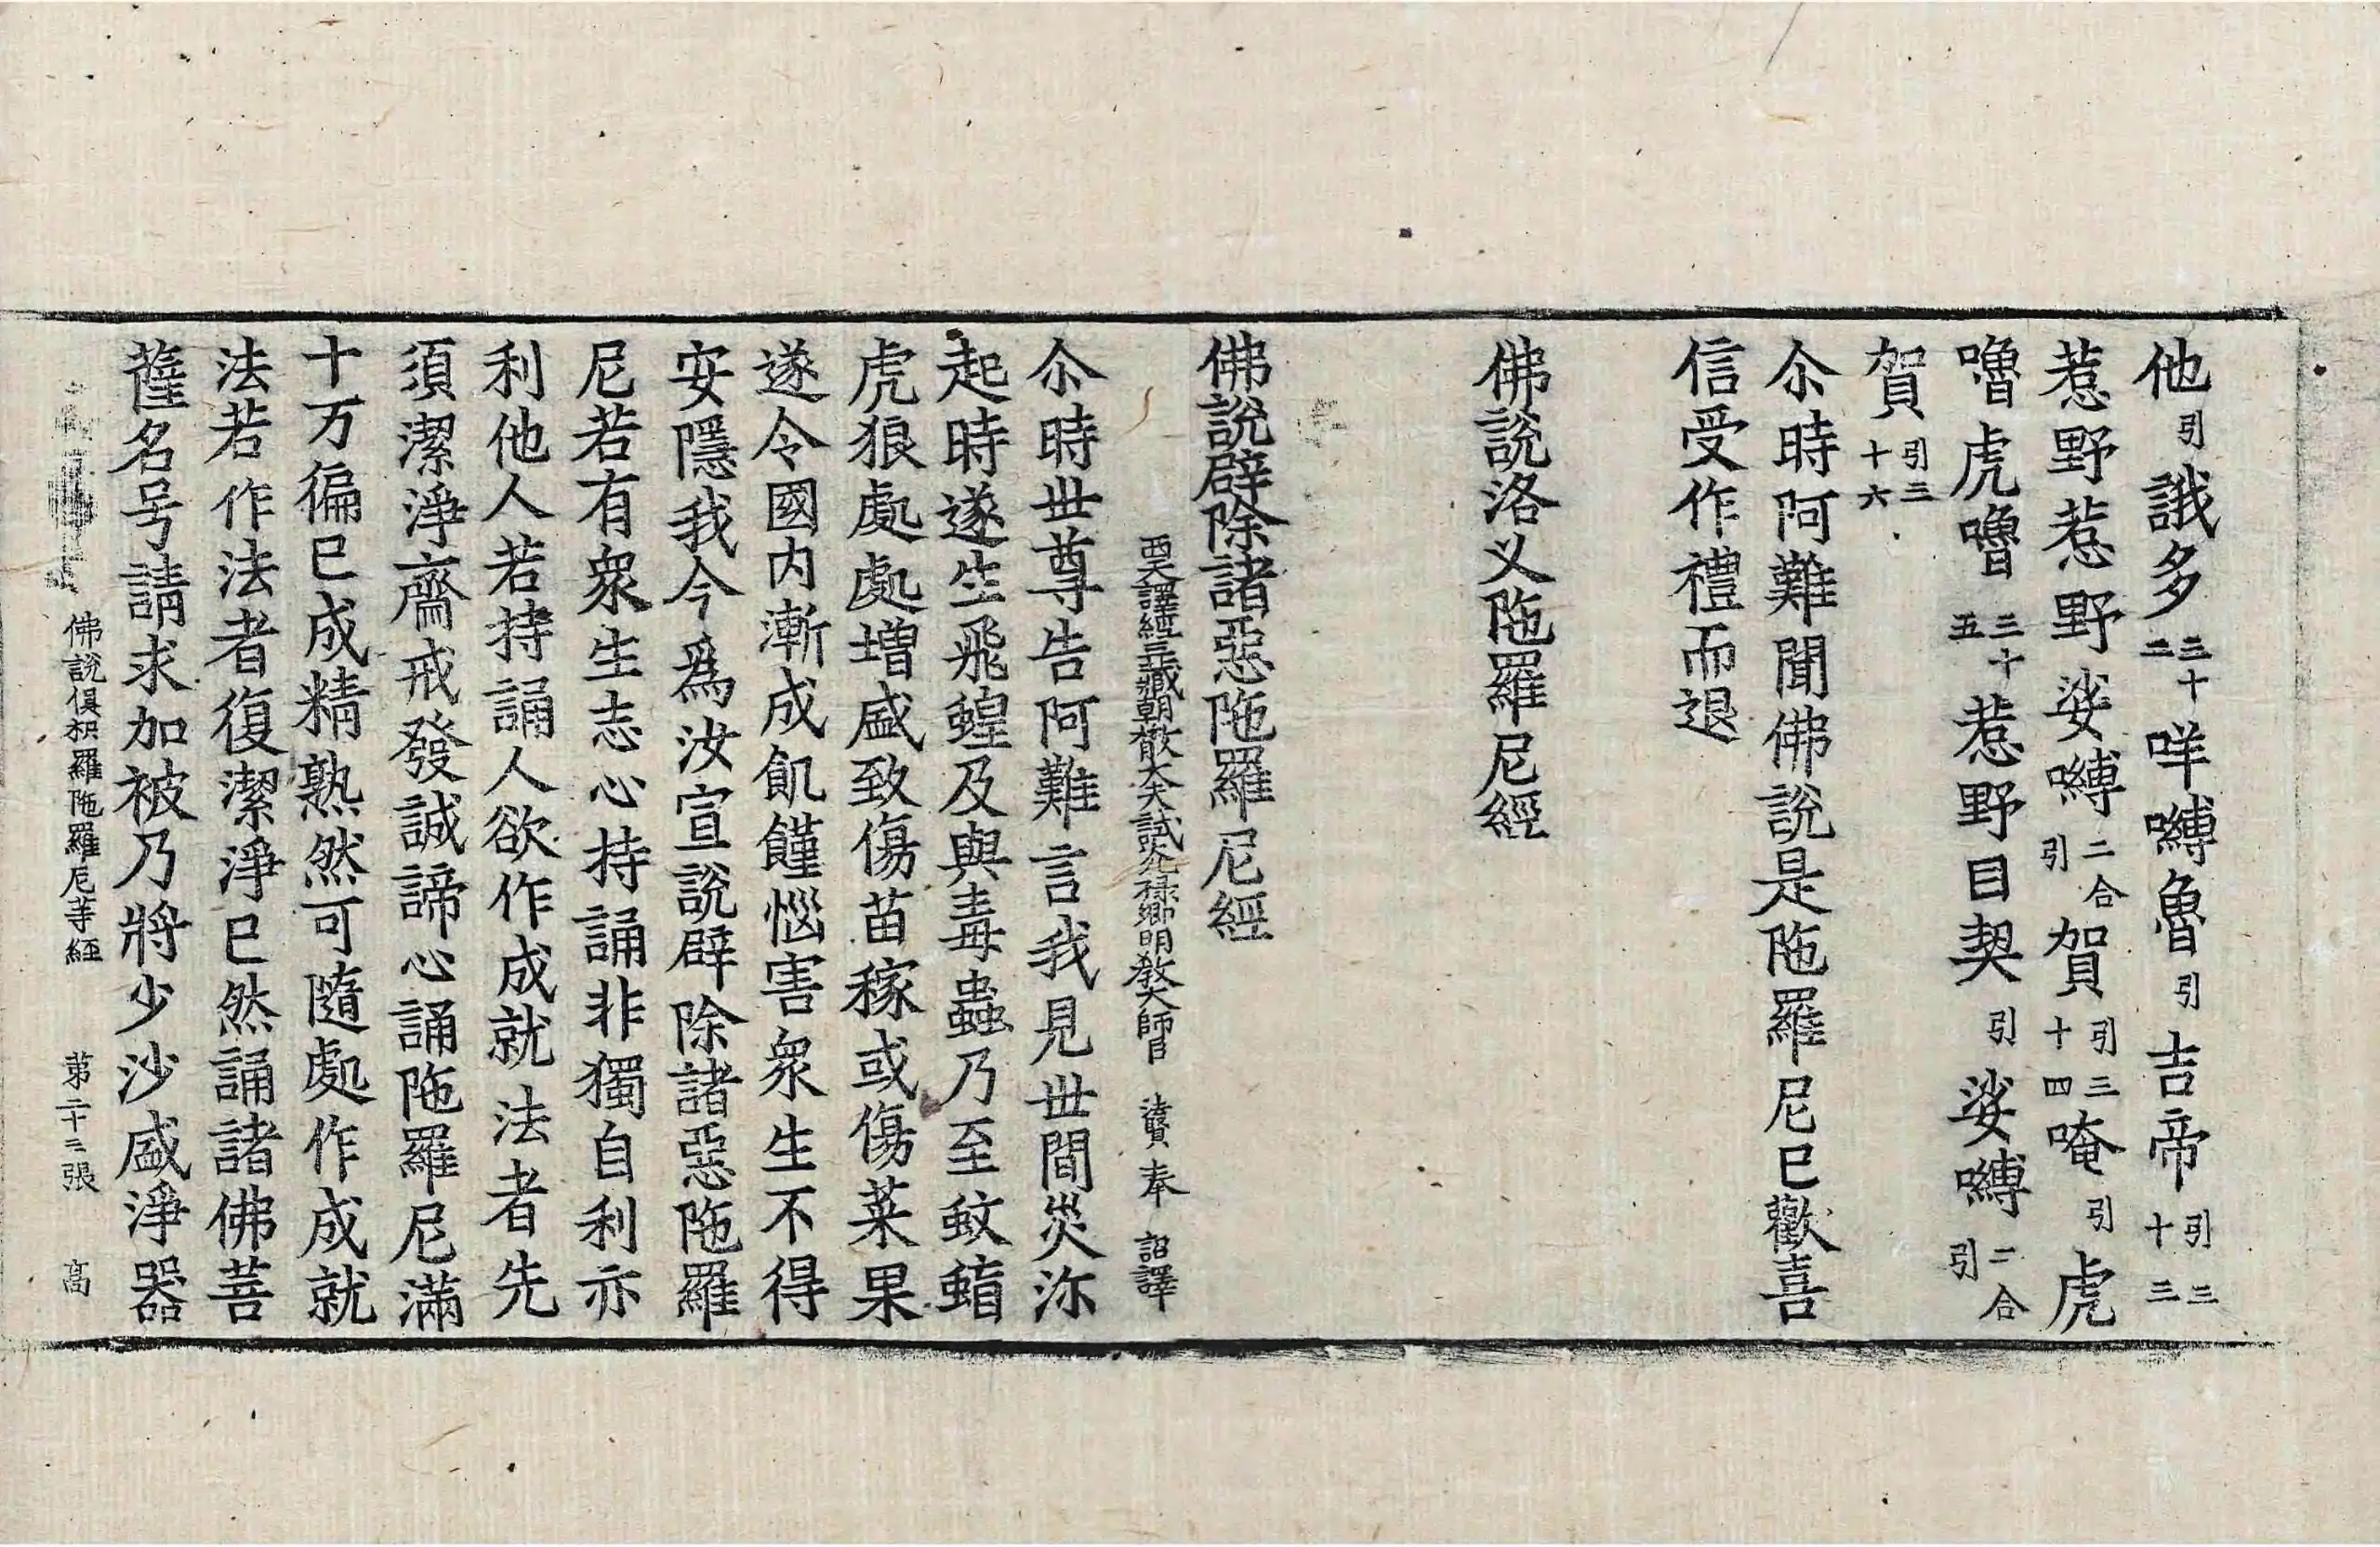 他引誐多三十二咩嚩魯引吉帝引三十三
惹野惹野娑嚩二合引賀引三十四唵引虎
嚕虎嚕三十五惹野目契引娑嚩二合引
賀引三十六
尒時阿難聞佛說是陁羅尼已歡喜
信受作禮而退
佛說洛叉陁羅尼經
佛說辟除諸惡陁羅尼經
西天譯經三藏朝散大夫試光祿卿明教大師臣 法賢 奉 詔譯
尒時世尊告阿難言我見世間災沴
起時遂生飛蝗及與毒蟲乃至蚊蝱
虎狼處處增盛致傷苗稼或傷菓果
遂令國內漸成飢饉惱害衆生不得
安隱我今爲汝宣說辟除諸惡陁羅
尼若有衆生志心持誦非獨自利亦
利他人若持誦人欲作成就法者先
須潔淨齋戒發誠諦心誦陁羅尼滿
十万徧已成精熟然可隨處作成就
法若作法者復潔淨已然誦諸佛菩
薩名号請求加被乃將少沙盛淨器
佛說俱枳羅陁羅尼等經 第二十三張 高